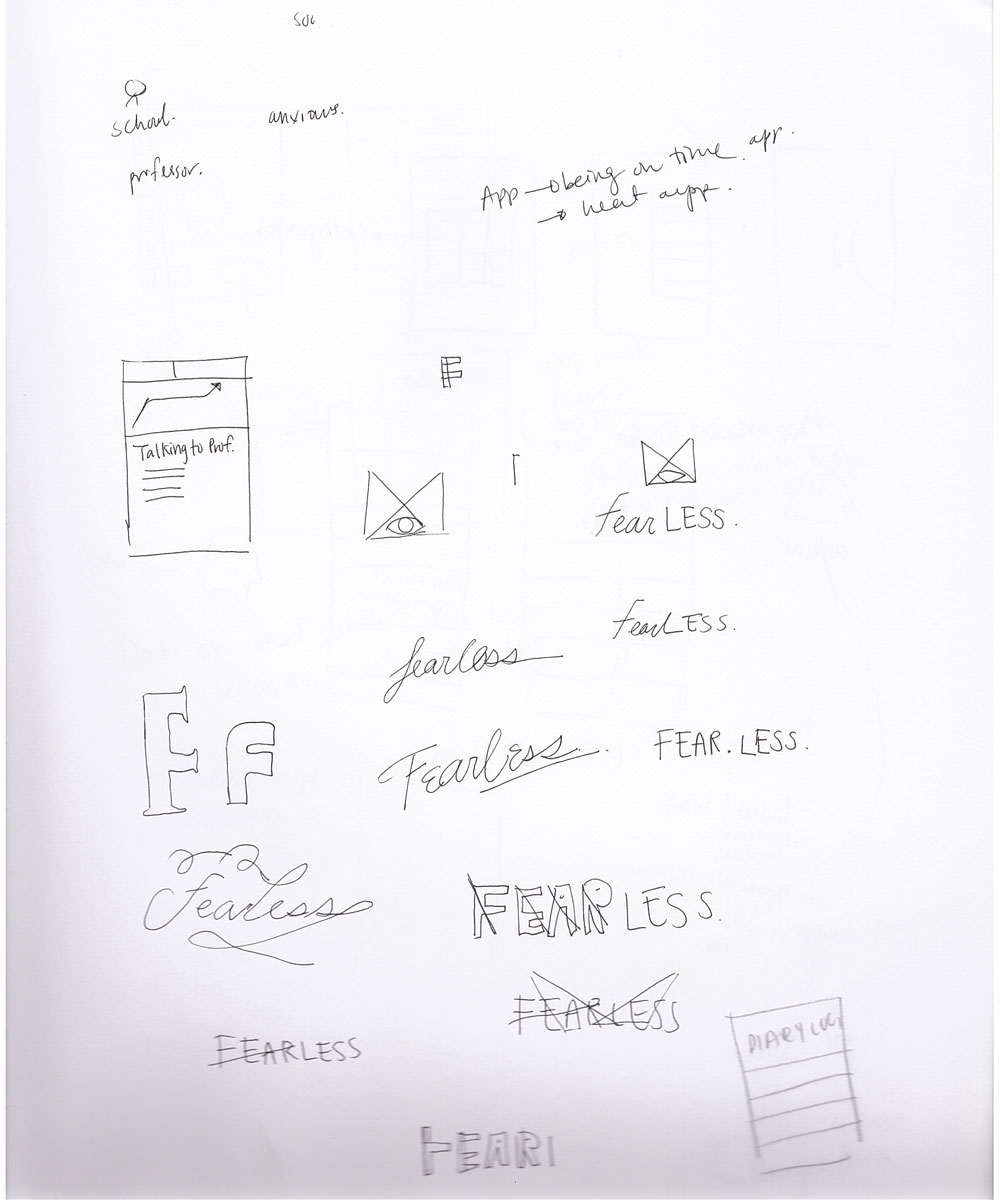 school.
anxious.
professor.
App → being on time app.
→ heat app.
F
Talking to Prof.
fearLESS.
fearLESS.
fearless
F f
Fearless.
FEAR.LESS.
Fearless
FEARLESS.
FEARLESS
FEARLESS
DIARY LOG
FEAR